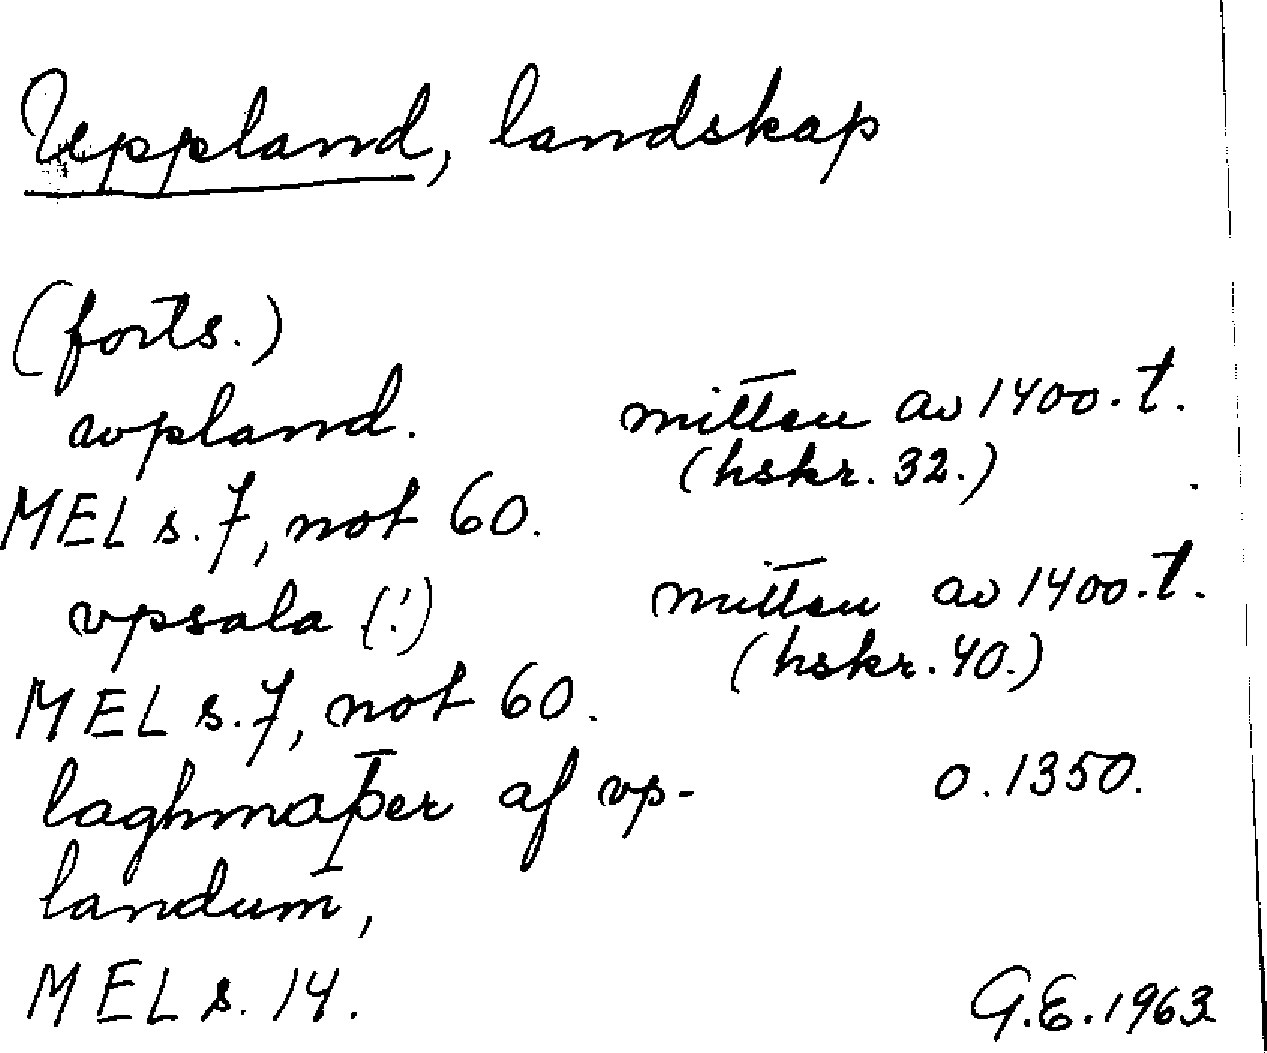 Uppland, landskap
(forts.)
wpland. mitten av 1400-t.
(hskr. 32.)
MEL s. 7, not 60.
vpsala (!) mitten av 1400-t.
(hskr. 40.)
MEL s. 7, not 60.
laghmaþer af vp- o. 1350.
landum,
MEL s. 14.
G.E. 1963.